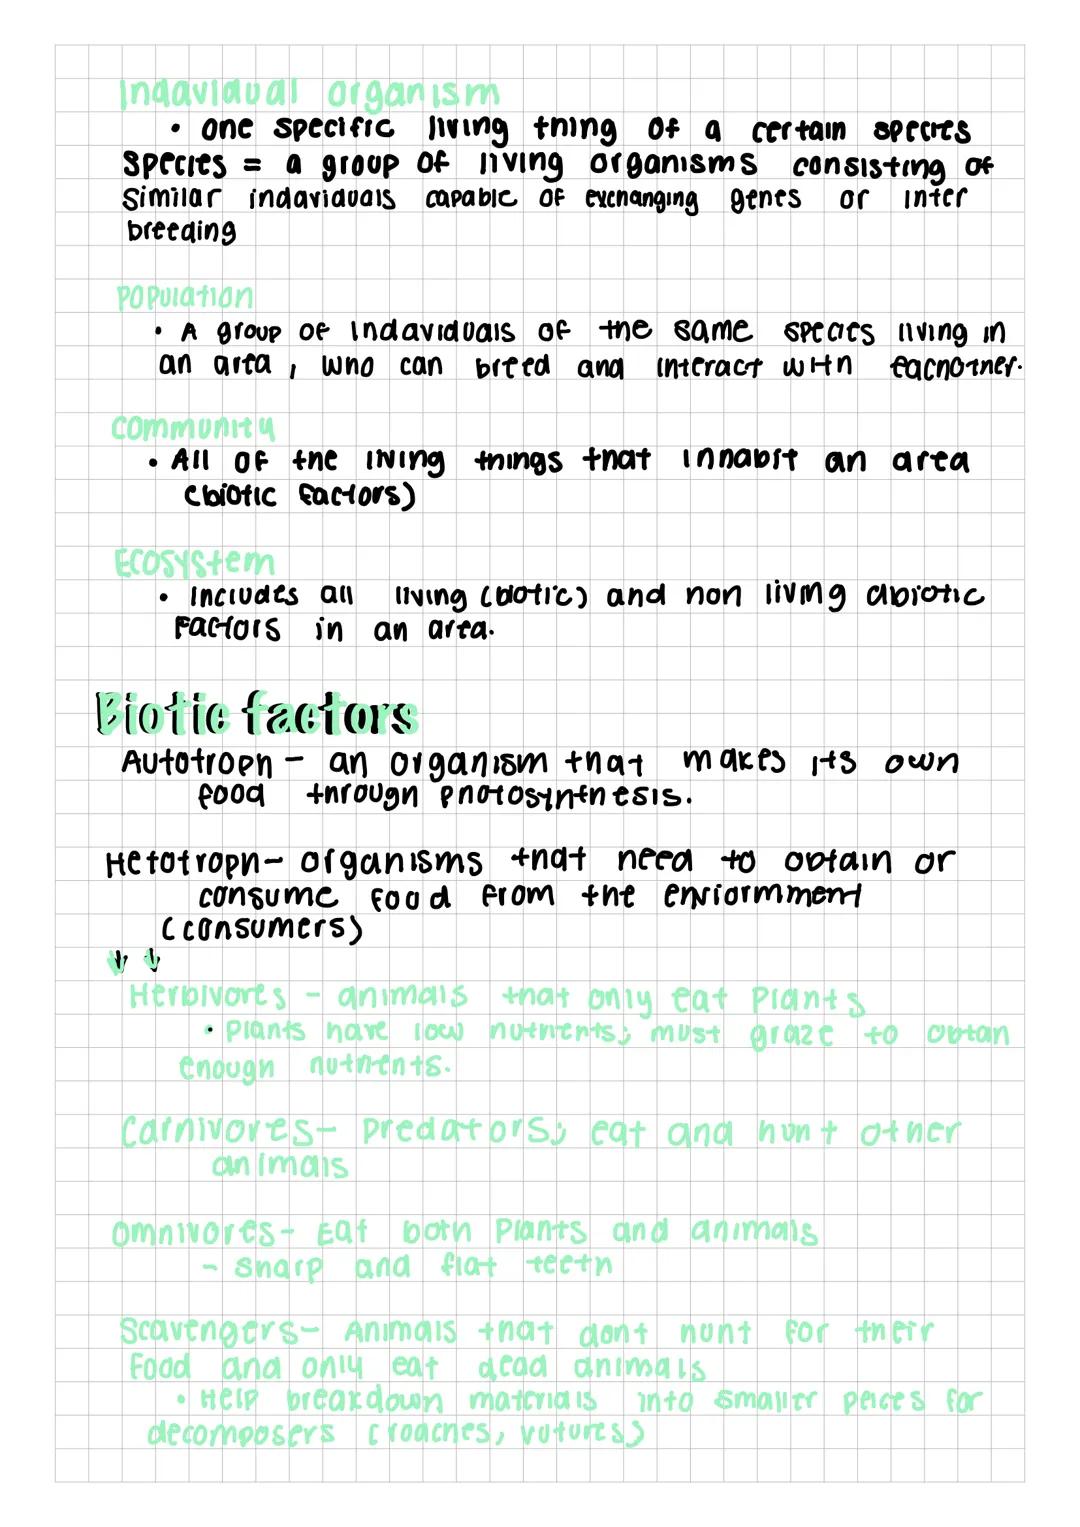 Indavidual organism
• one specific living thing of a certain species
Species = a group of living organisms consisting of
similar indaviduals capable of exchanging genes or inter
breeding
Population
• A group of indaviduals of the same species living in
an area, who can breed and interact with eachother.
Community
• All of the living things that inhabit an area
(biotic factors)
Ecosystem
• Includes all living (biotic) and non living abiotic
Factors in an area.
Biotic factors
Autotroph - an organism that makes its own
food through photosynthesis.
Hetotroph - organisms that need to obtain or
consume food from the enviormment
(consumers)
↓ ↓
Herbivores - animals that only eat plants
• plants have low nutrients; must graze to obtan
enough nutrients.
Carnivores - predators; eat and hunt other
animals
Omnivores - Eat both plants and animals
- sharp and flat teeth
Scavengers - Animals that dont hunt for their
food and only eat dead animals
• Help breakdown materials into smaller peices for
decomposers (roaches, vutures)